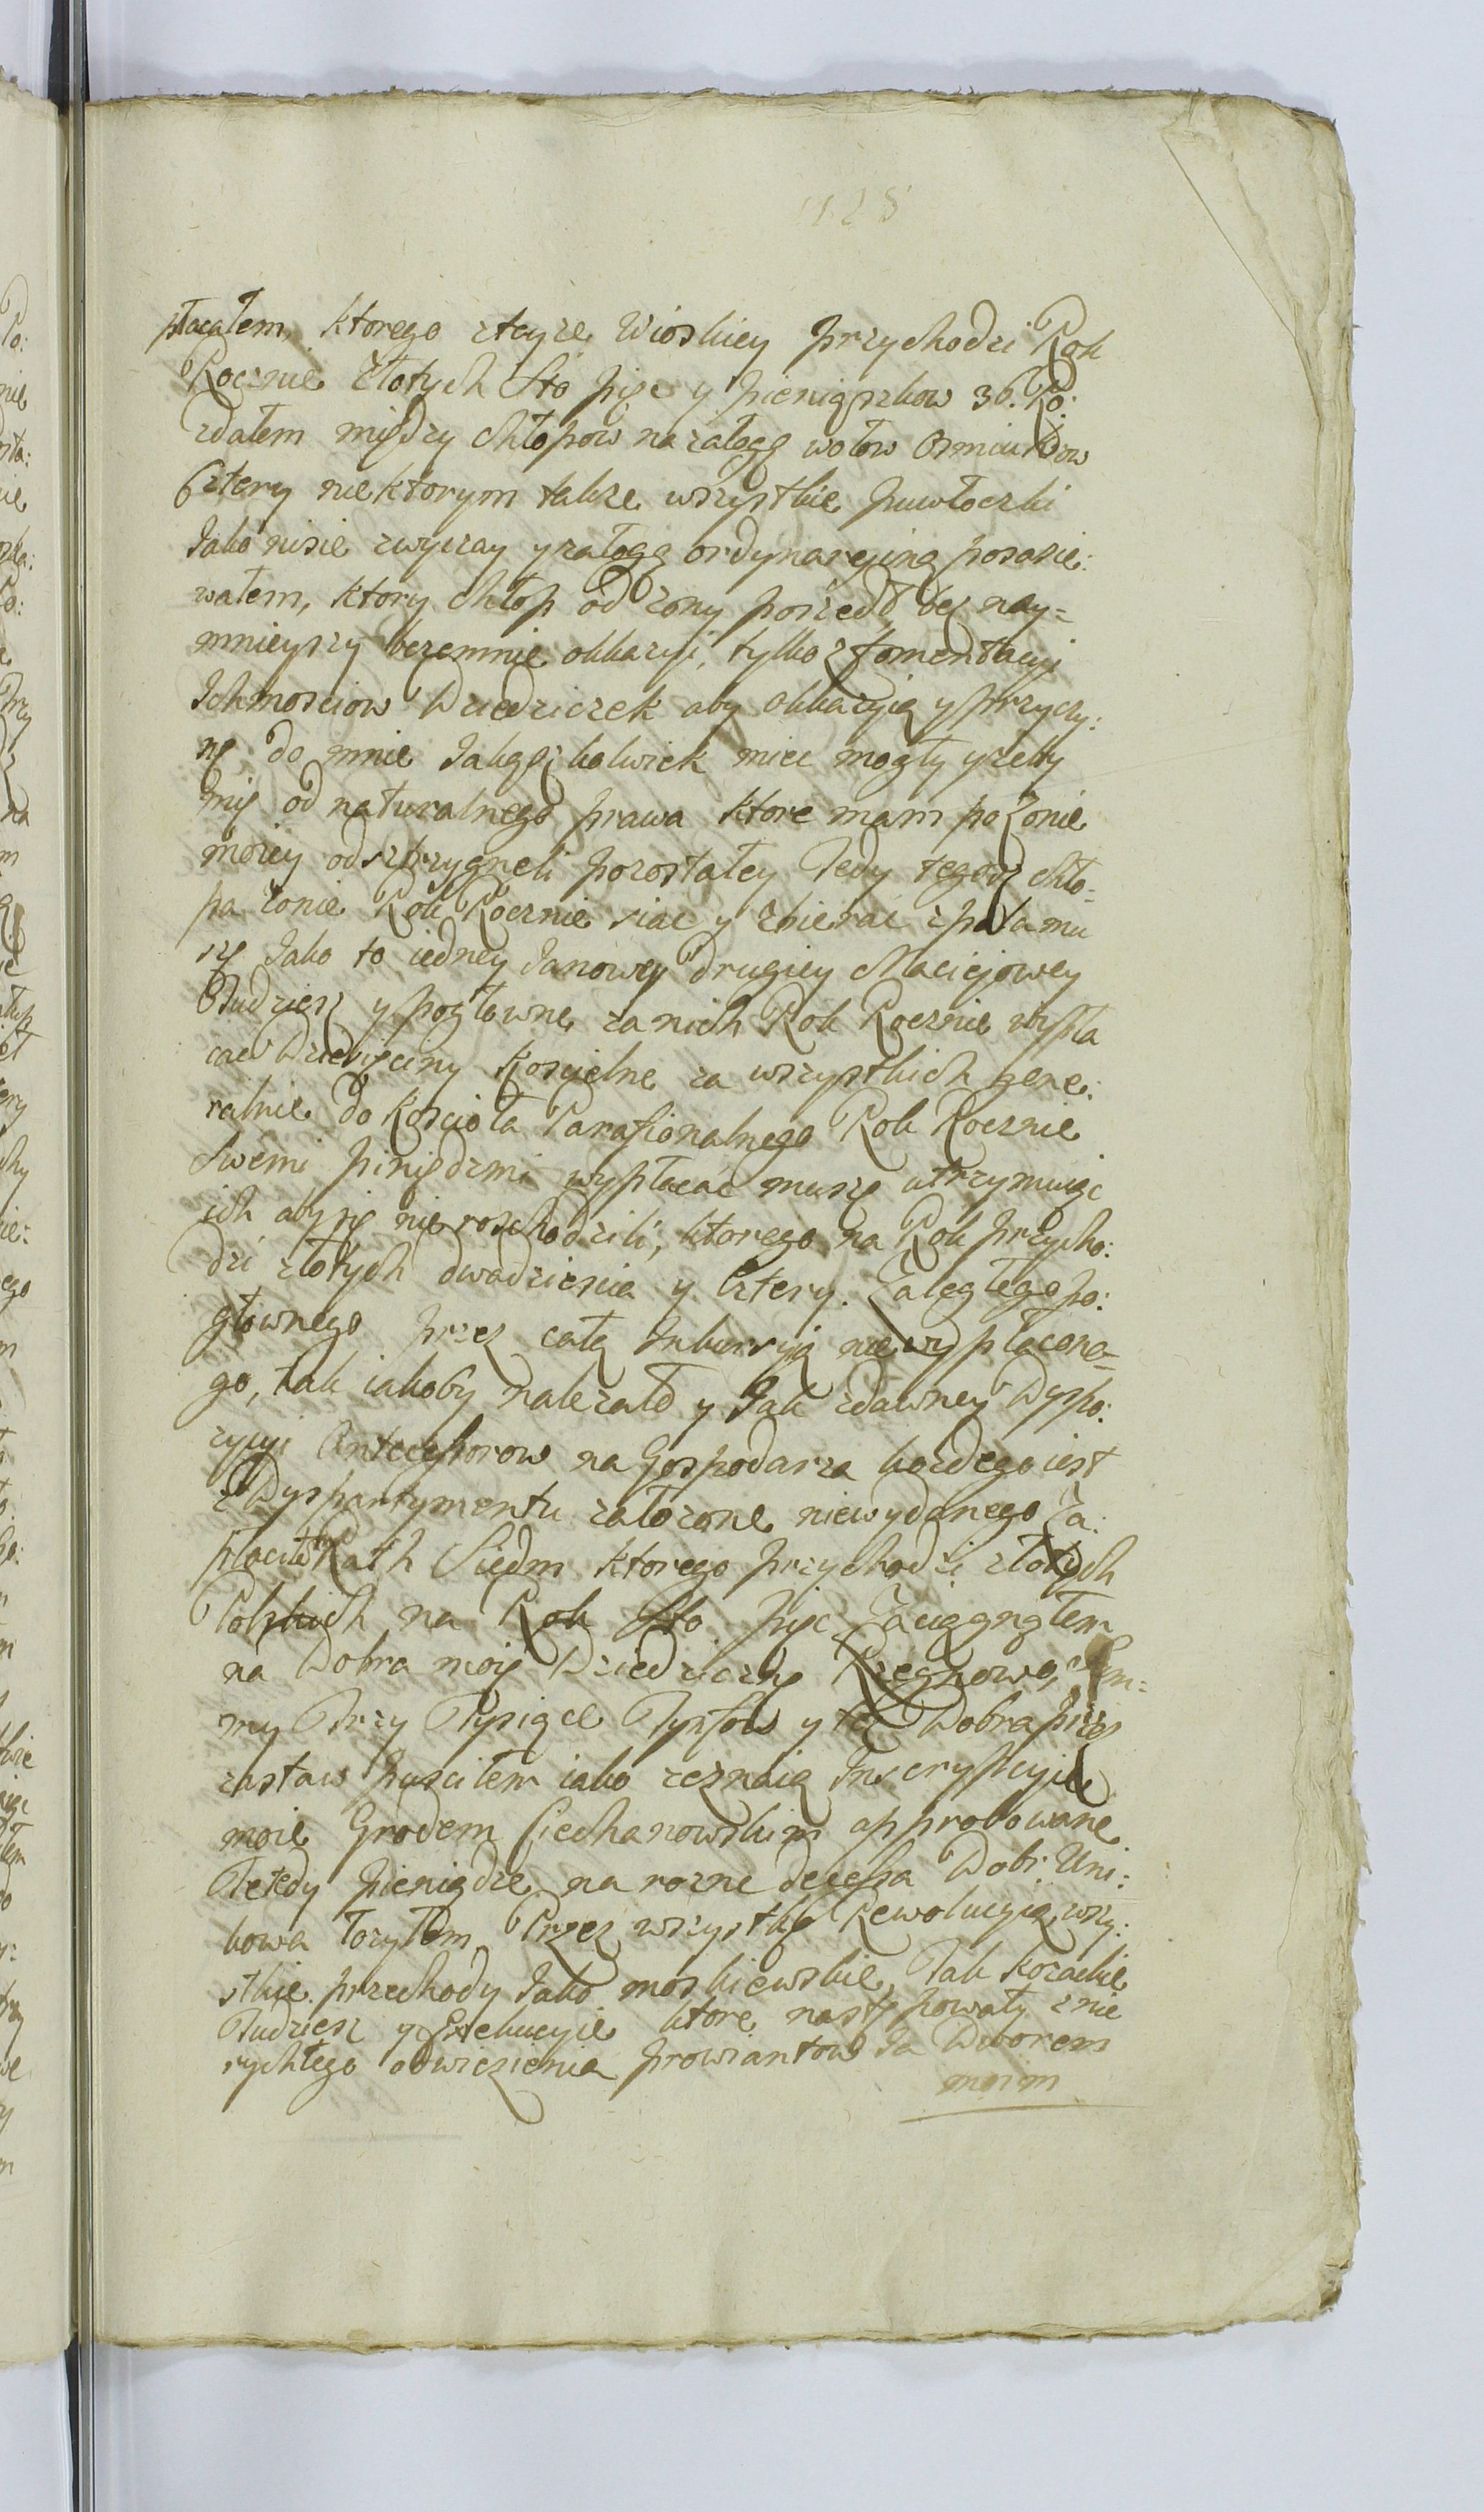 płacałem, ktorego zteyze Wioskiey przychodzi Rok
Rocznie Złotych Sto pięc y pieniązkow 36. Ro:
zdałem między Chłopow na załogę wołow Osmiu krow
Cztery niektorym takze wszystkie puwłoczki
Jako niesie zwyczay y załogą ordynaryiną posasie:
wałem, ktory Chłop od zony poszedł bez nay=
mnieyszy bezemnie okkazyi, tylko z fomentacyi
Ichmosciow Dziedziczek aby okkazyią y przyczy:
nę do mnie Jakąszkolwiek miec mogły y zeby
mię od naturalnego prawa ktore mam po Zonie
moiey odsztrzygneli pozostałey Tedy tegosz chło=
pa zonie Rok Rocznie siac y zbierac z pola mu
szę Jako to iedney Janowey drugiey Maciejowey
Tudziesz y pogłowne za nich Rok Rocznie wypła
cac Dziesięciny Koscielne za wszystkich gene:
ralnie do Koscioła Parafionalnego Rok Rocznie
Swemi piniędzmi wypłacac muszę utrzymuiąc
ich aby się nierozchodzili, ktorego na Rok przycho:
dzi złotych dwadziescia y Cztery. Zaległego po:
głownego przez całą Inkursyią niewypłacone=
go, tak iakoby nalezało y Jak zdawney Dyspo:
zycyi Antecessorow na Gospodarza kazdego iest
z Dyspartymentu załozone niewydanego Za:
płacił Rath Siedm ktorego przychodzi złotych
Polskich na Rok Sto pięc Zaciągnąłem
na Dobra moię Dziedziczne Rzęgnowo, Sum:
my Trzy Tysiące Tynfow y też Dobra przez
zastaw pusciłem iako zeznaią Inskrypcyie
moie Grodem Ciechanowskim approbowane
Te tedy pieniądze na rozne decessa Dobr Uni:
kowa łozyłem Przez wszystkę Rewolucyią wszy:
stkie przechody Jako moskiewskie, Tak Kozackie
Tudziesz y Exekucyie ktore następowały z nie
rychłego odwiezienia prowiantow Ja Dworem
moim